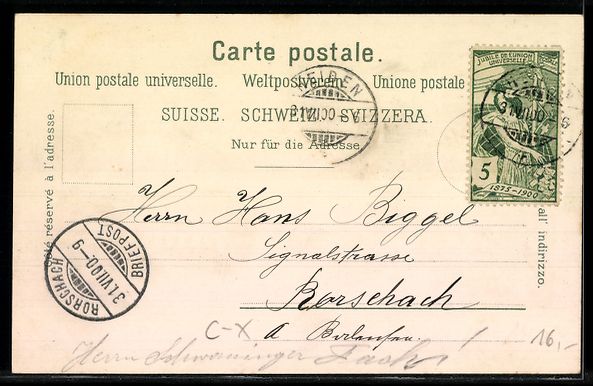 Carte postale.
Union postale universelle. Weltpostverein. Unione postale
SUISSE. SCHWEIZ. SVIZZERA.
Nur für die Adresse
JUBILÉ DE L'UNION
UNIVERSELLE
5
1875-1900
HEIDEN
31.VII.00
31.VII.00
Côté réservé à l'adresse.
all' indirizzo.
Herrn Hans Biggel
Signalstrasse
Rorschach
a Bodensee
RORSCHACH
31.VII.00.-9
BRIEFPOST
C-X
16,-
Herrn